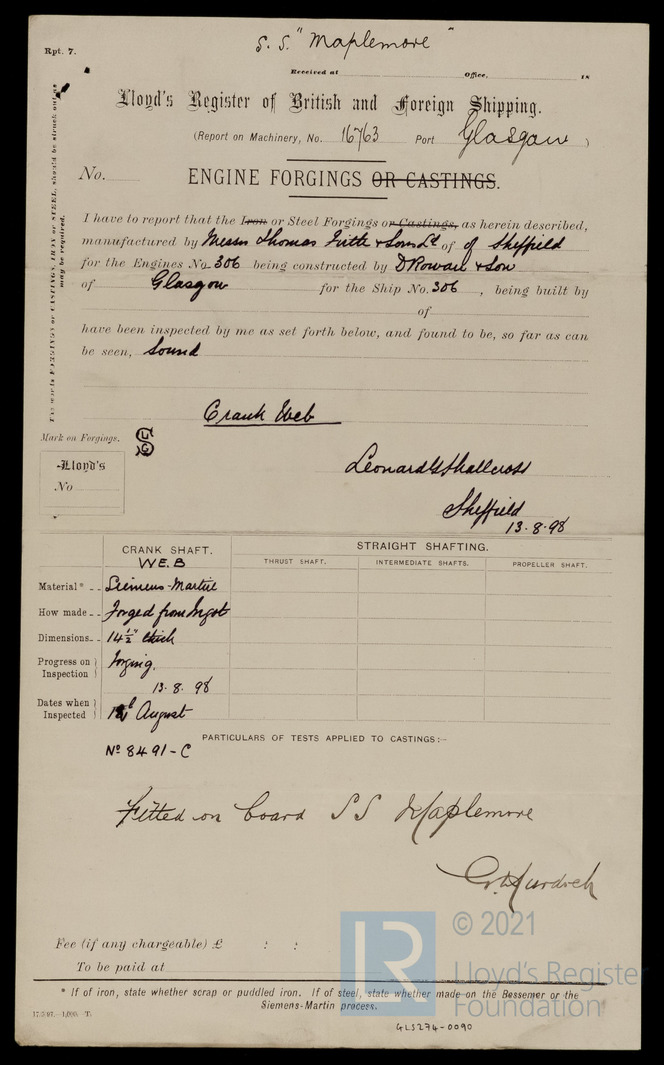 S.S. "Maplemore"
Rpt. 7.
Received at Office, 18
Lloyd's Register of British and Foreign Shipping.
(Report on Machinery, No. 16763 Port Glasgow )
No. ENGINE FORGINGS OR CASTINGS.
I have to report that the Iron or Steel Forgings or Castings, as herein described,
manufactured by Messrs Thomas Firth & Sons Ld of of Sheffield
for the Engines No. 306 being constructed by D Rowan & Son
of Glasgow for the Ship No. 306 , being built by
of
have been inspected by me as set forth below, and found to be, so far as can
be seen, Sound
The words FORGINGS or CASTINGS, IRON or STEEL, should be struck out as
may be required.
Crank Web
Mark on Forgings.
Lloyd's
No
Leonard Shallcross
Sheffield
13.8.98
CRANK SHAFT. STRAIGHT SHAFTING.
WEB THRUST SHAFT. INTERMEDIATE SHAFTS. PROPELLER SHAFT.
Material* Siemens-Martin
How made Forged from Ingot
Dimensions 14½" thick
Progress on Inspection Forging.
13.8.98
Dates when Inspected August
PARTICULARS OF TESTS APPLIED TO CASTINGS:-
No 8491-C
Fitted on board SS Maplemore
Murdoch
Fee (if any chargeable) £ : :
To be paid at
* If of iron, state whether scrap or puddled iron. If of steel, state whether made on the Bessemer or the
Siemens-Martin process.
LR © 2021
Lloyd's Register
Foundation
GLS274-0090